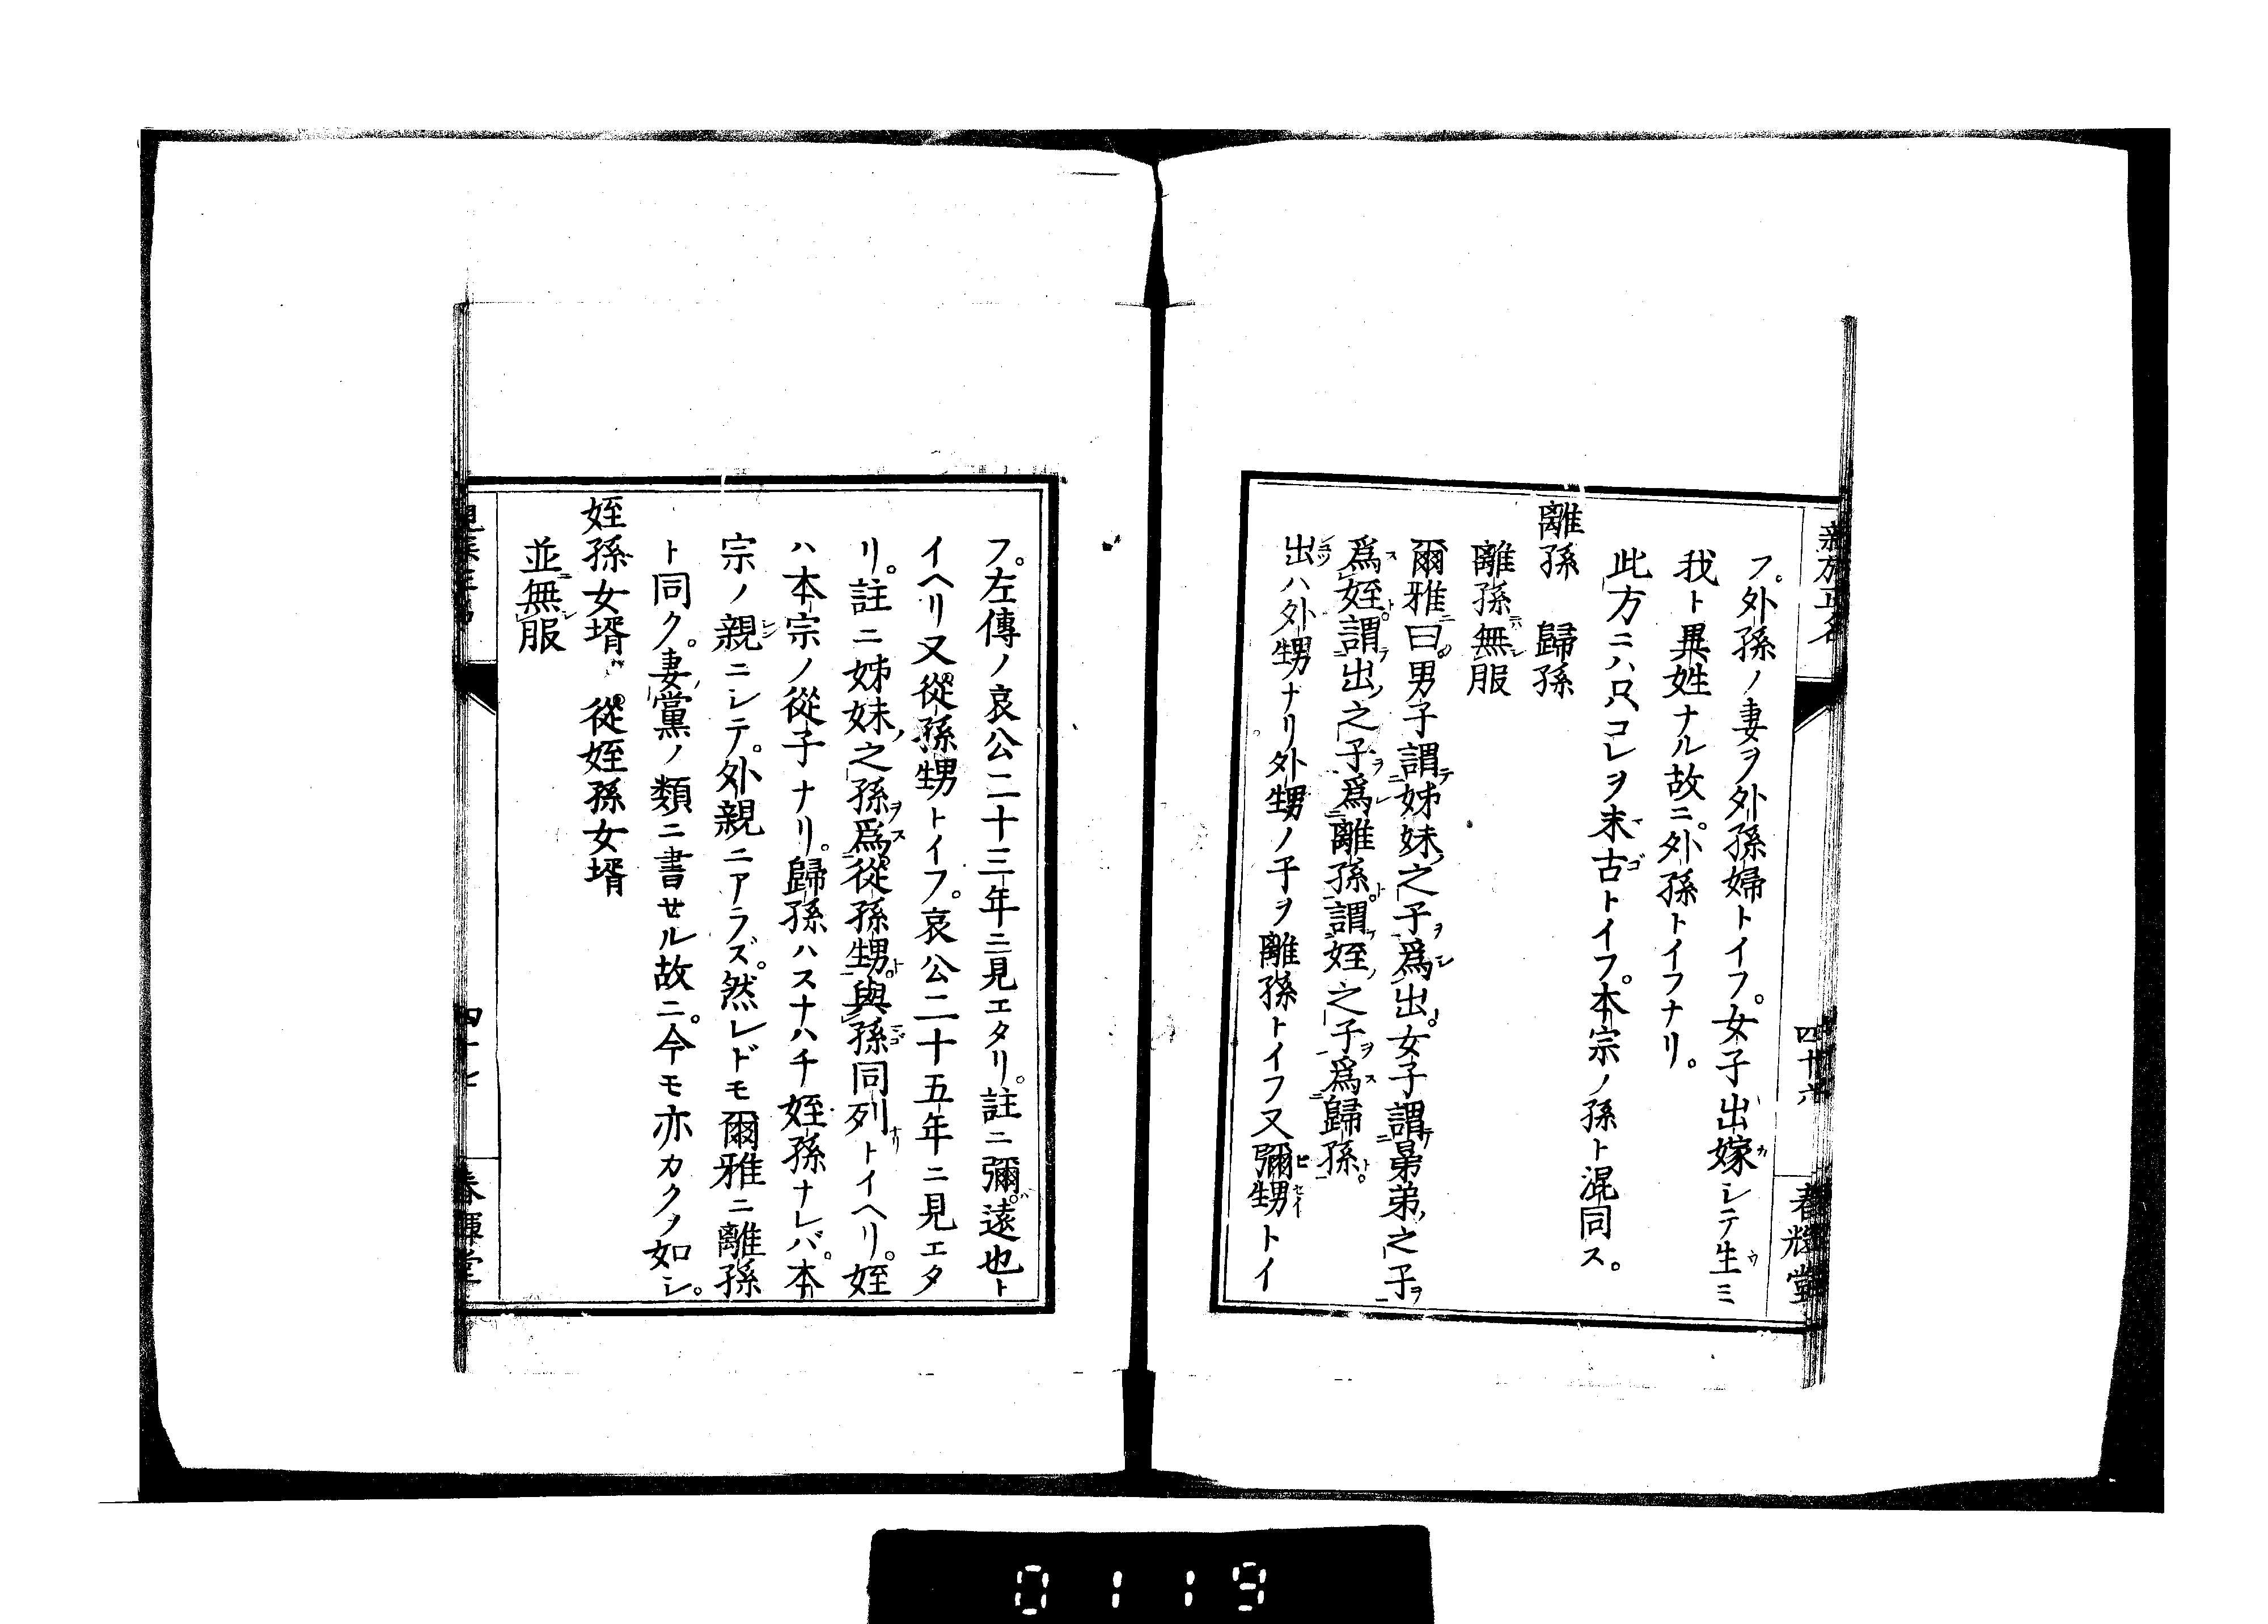 親族正名
四十六
春輝堂
フ。外孫ノ妻ヲ外孫婦トイフ。女子出嫁シテ生ミ
我ト異姓ナル故ニ。外孫トイフナリ。
此方ニハ只コレヲ末古トイフ。本宗ノ孫ト混同ス。
離孫　歸孫
離孫無服
爾雅曰。男子謂姊妹之子爲出。女子謂晜弟之子
爲姪。謂出之子爲離孫。謂姪之子爲歸孫。
出ハ外甥ナリ外甥ノ子ヲ離孫トイフ又彌甥トイ
フ。左傳ノ哀公二十三年ニ見エタリ。註ニ彌。遠也ト
イヘリ又從孫甥トイフ。哀公二十五年ニ見エタ
リ。註ニ姊妹之孫爲從孫甥。與孫同列トイヘリ。姪
ハ本宗ノ從子ナリ。歸孫ハスナハチ姪孫ナレバ。本
宗ノ親ニシテ。外親ニアラズ。然レドモ爾雅ニ離孫
ト同ク。妻黨ノ類ニ書セル故ニ。今モ亦カクノ如シ。
姪孫女壻　從姪孫女壻
並無服
四十七
春輝堂
0119